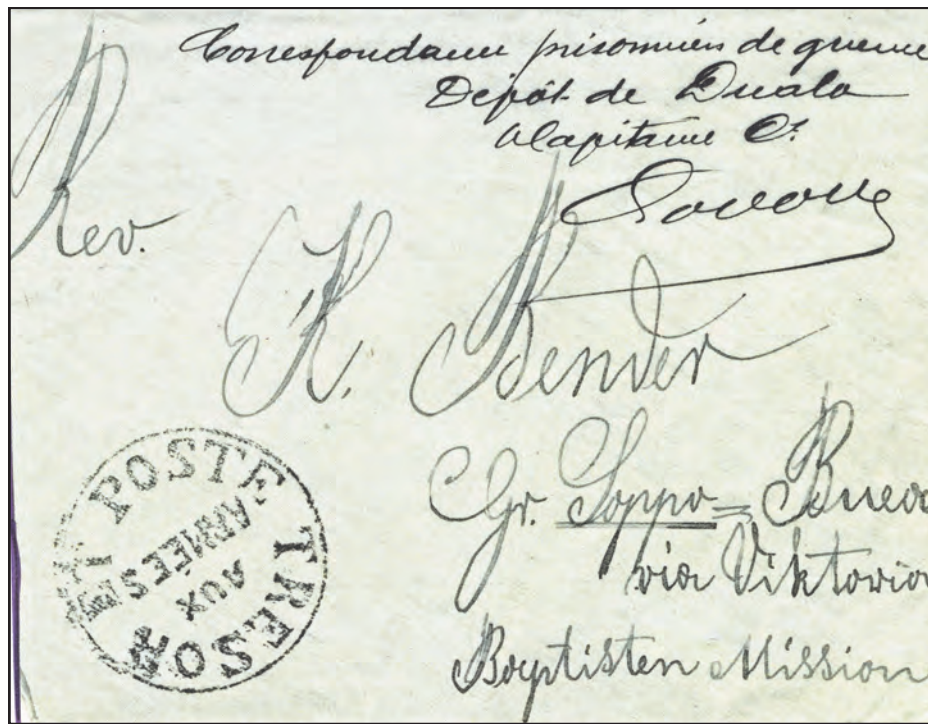 Correspondance prisonniers de guerre
Dépôt de Duala
Capitaine Ct
Rev.
K. Bender
Gr. Soppo = Buea
via Viktoria
Baptisten Mission
TRESOR ET POSTE
AUX
ARMEES